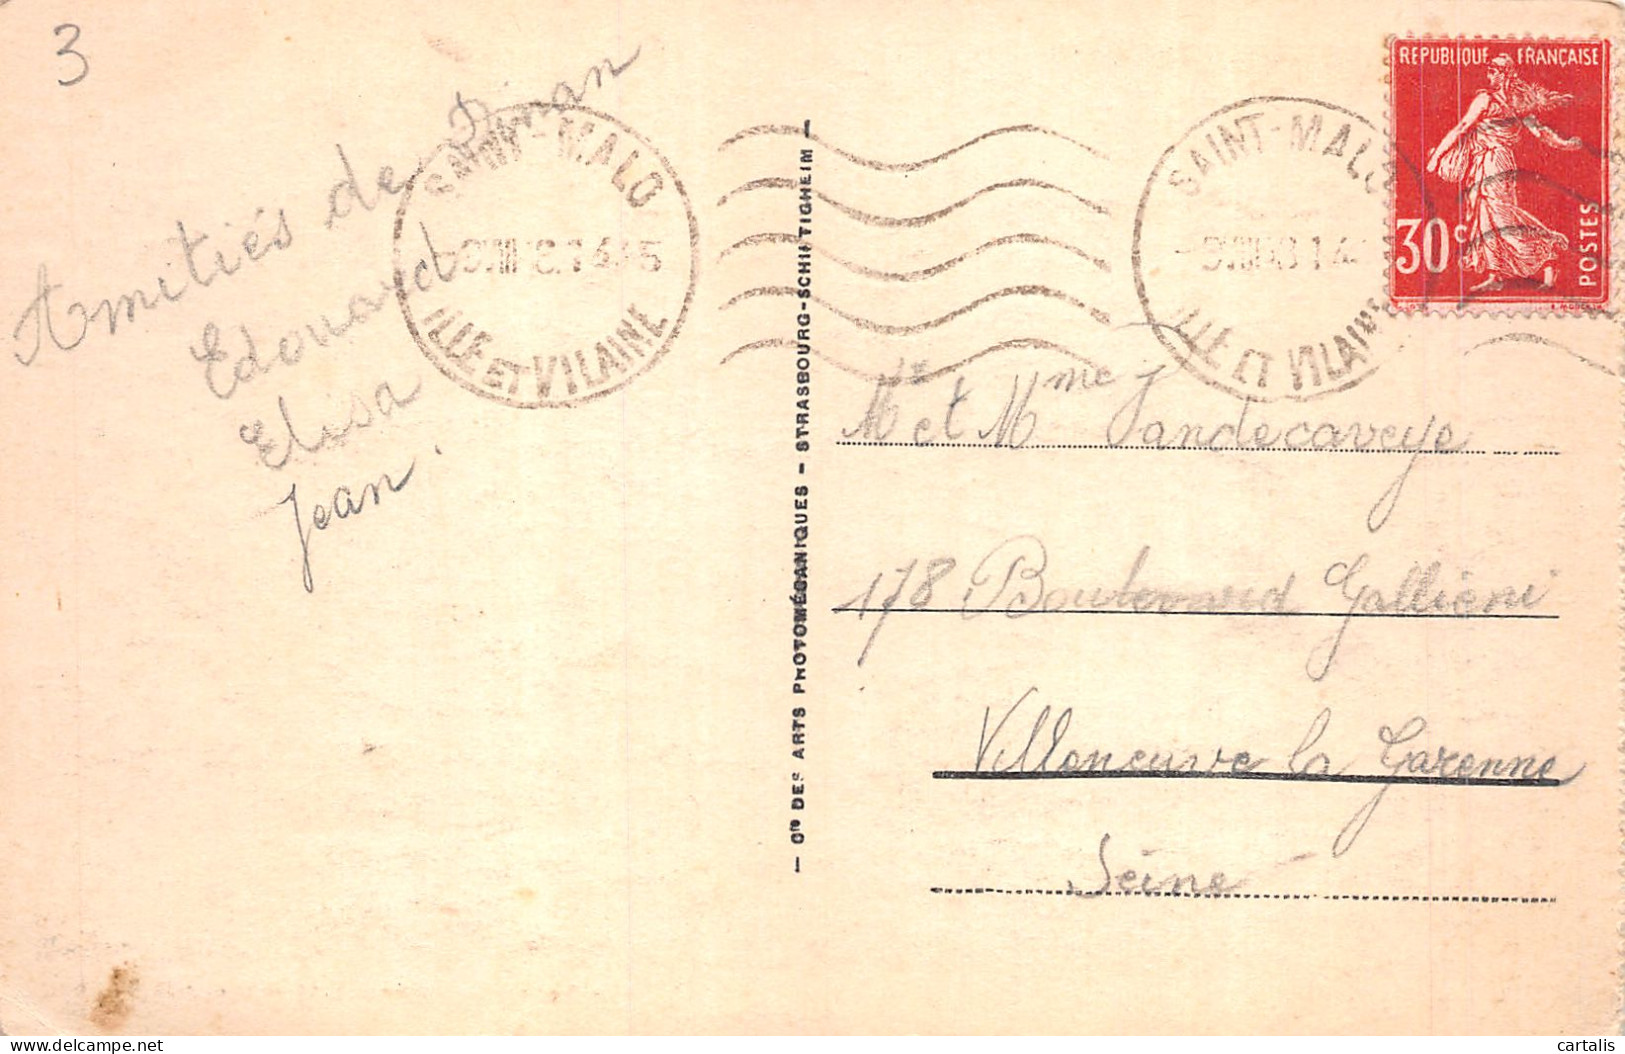 3
Amitiés de Dinan
Edouard
Elisa
Jean.
SAINT-MALO
ILLE ET VILAINE
SAINT-MALO
ILLE ET VILAINE
REPUBLIQUE FRANÇAISE
30c
POSTES
Cie DES ARTS PHOTOMÉCANIQUES - STRASBOURG-SCHILTIGHEIM
Mr et Mme Vandecaveye
178 Boulevard Galliéni
Villeneuve la Garenne
Seine
delcampe.net
cartalis